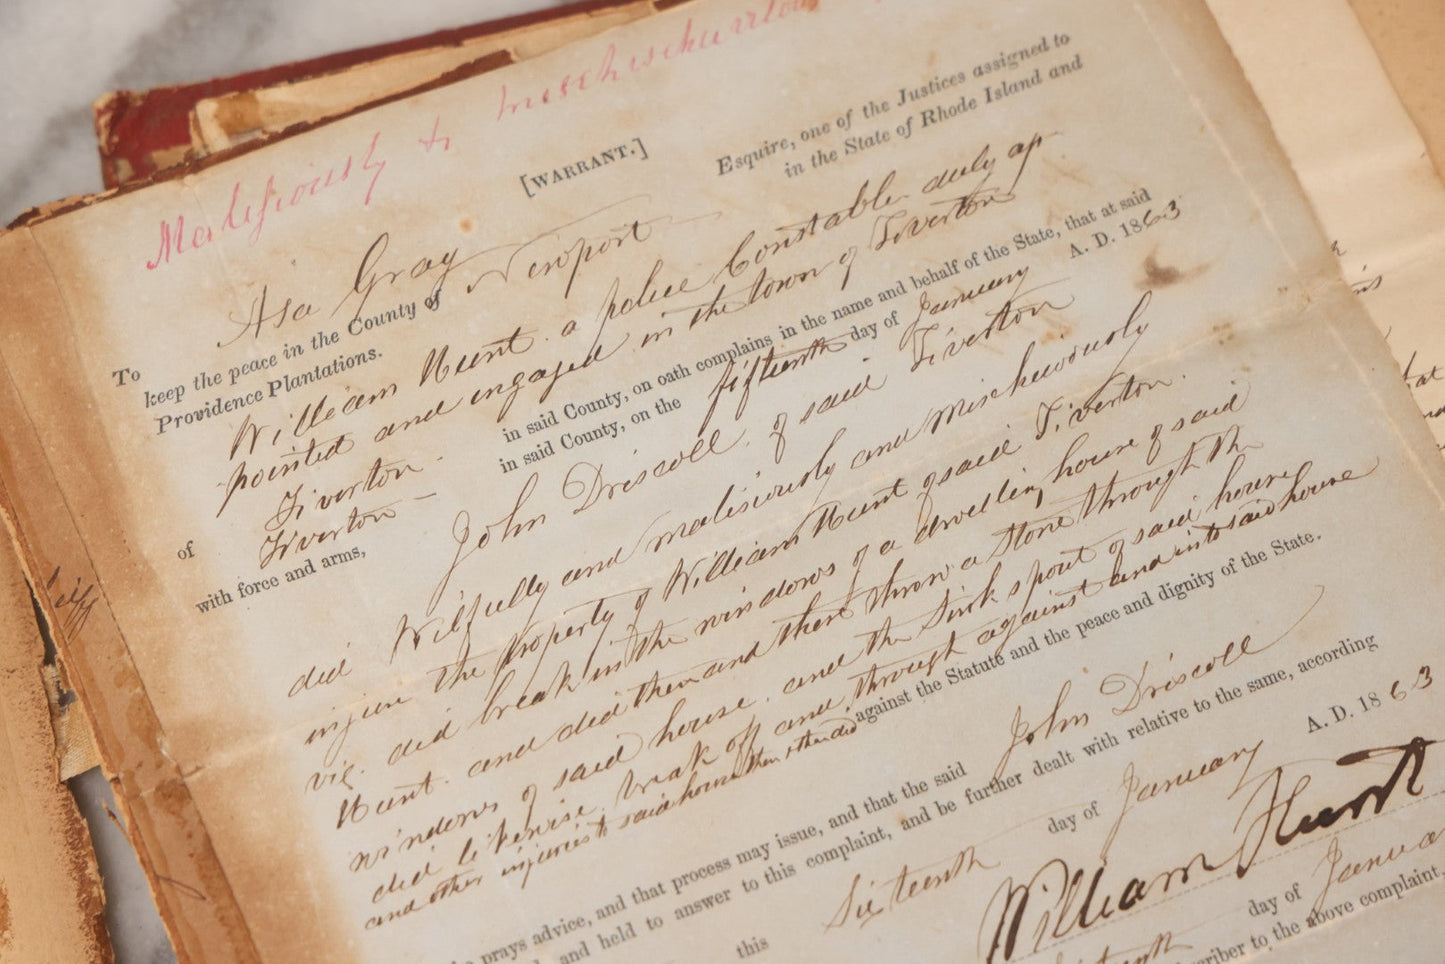 Malisiously & mischeviou
[WARRANT.]
To Asa Gray Esquire, one of the Justices assigned to
keep the peace in the County of Newport in the State of Rhode Island and
Providence Plantations.
William Hunt. a police Constable duly ap-
pointed and engaged in the town of Tiverton
of Tiverton. in said County, on oath complains in the name and behalf of the State, that at said
Tiverton in said County, on the fifteenth day of January A. D. 1863
with force and arms, John Driscoll. of said Tiverton
did Wilfully and malisiously and mischeviously
injure the property of William Hunt of said Tiverton.
viz. did break in the windows of a dwelling house of said
Hunt. and did then and there throw a stone through the
windows of said house. and the sink spout of said house
did likewise break off and through against and into said house
and other injuries to said house then & there did against the Statute and the peace and dignity of the State.
prays advice, and that process may issue, and that the said John Driscoll
and held to answer to this complaint, and be further dealt with relative to the same, according
this Sixteenth day of January A. D. 1863
William Hunt
day of Janua
scriber to the above complaint.